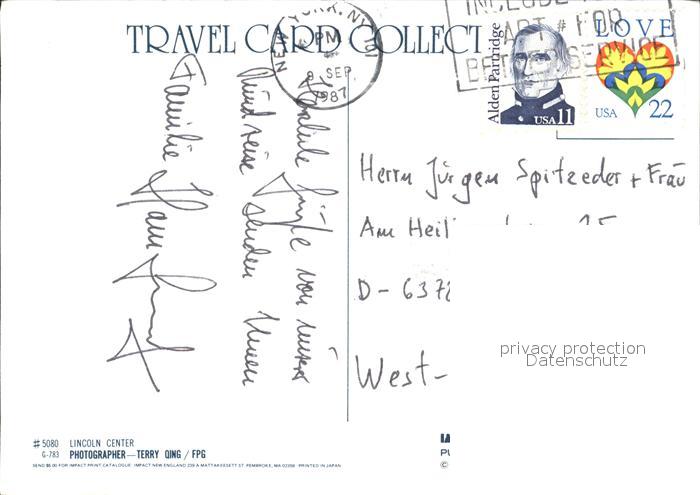 TRAVEL CARD COLLECT
NEW YORK, NY 101
PM
8 SEP
1987
INCLUDE
ART # FOR
BETTER SERVICE
Alden Partridge
USA 11
LOVE
USA 22
Herzliche Grüße von unserer
Rundreise senden Ihnen
Familie
Herrn Jürgen Spitzeder + Frau
Am Heil
15
D-637
West-
privacy protection
Datenschutz
#5080 LINCOLN CENTER
G-783 PHOTOGRAPHER—TERRY QING / FPG
SEND $5.00 FOR IMPACT PRINT CATALOGUE IMPACT NEW ENGLAND 239 A MATTAKEESETT ST. PEMBROKE, MA 02359 PRINTED IN JAPAN
PU
©